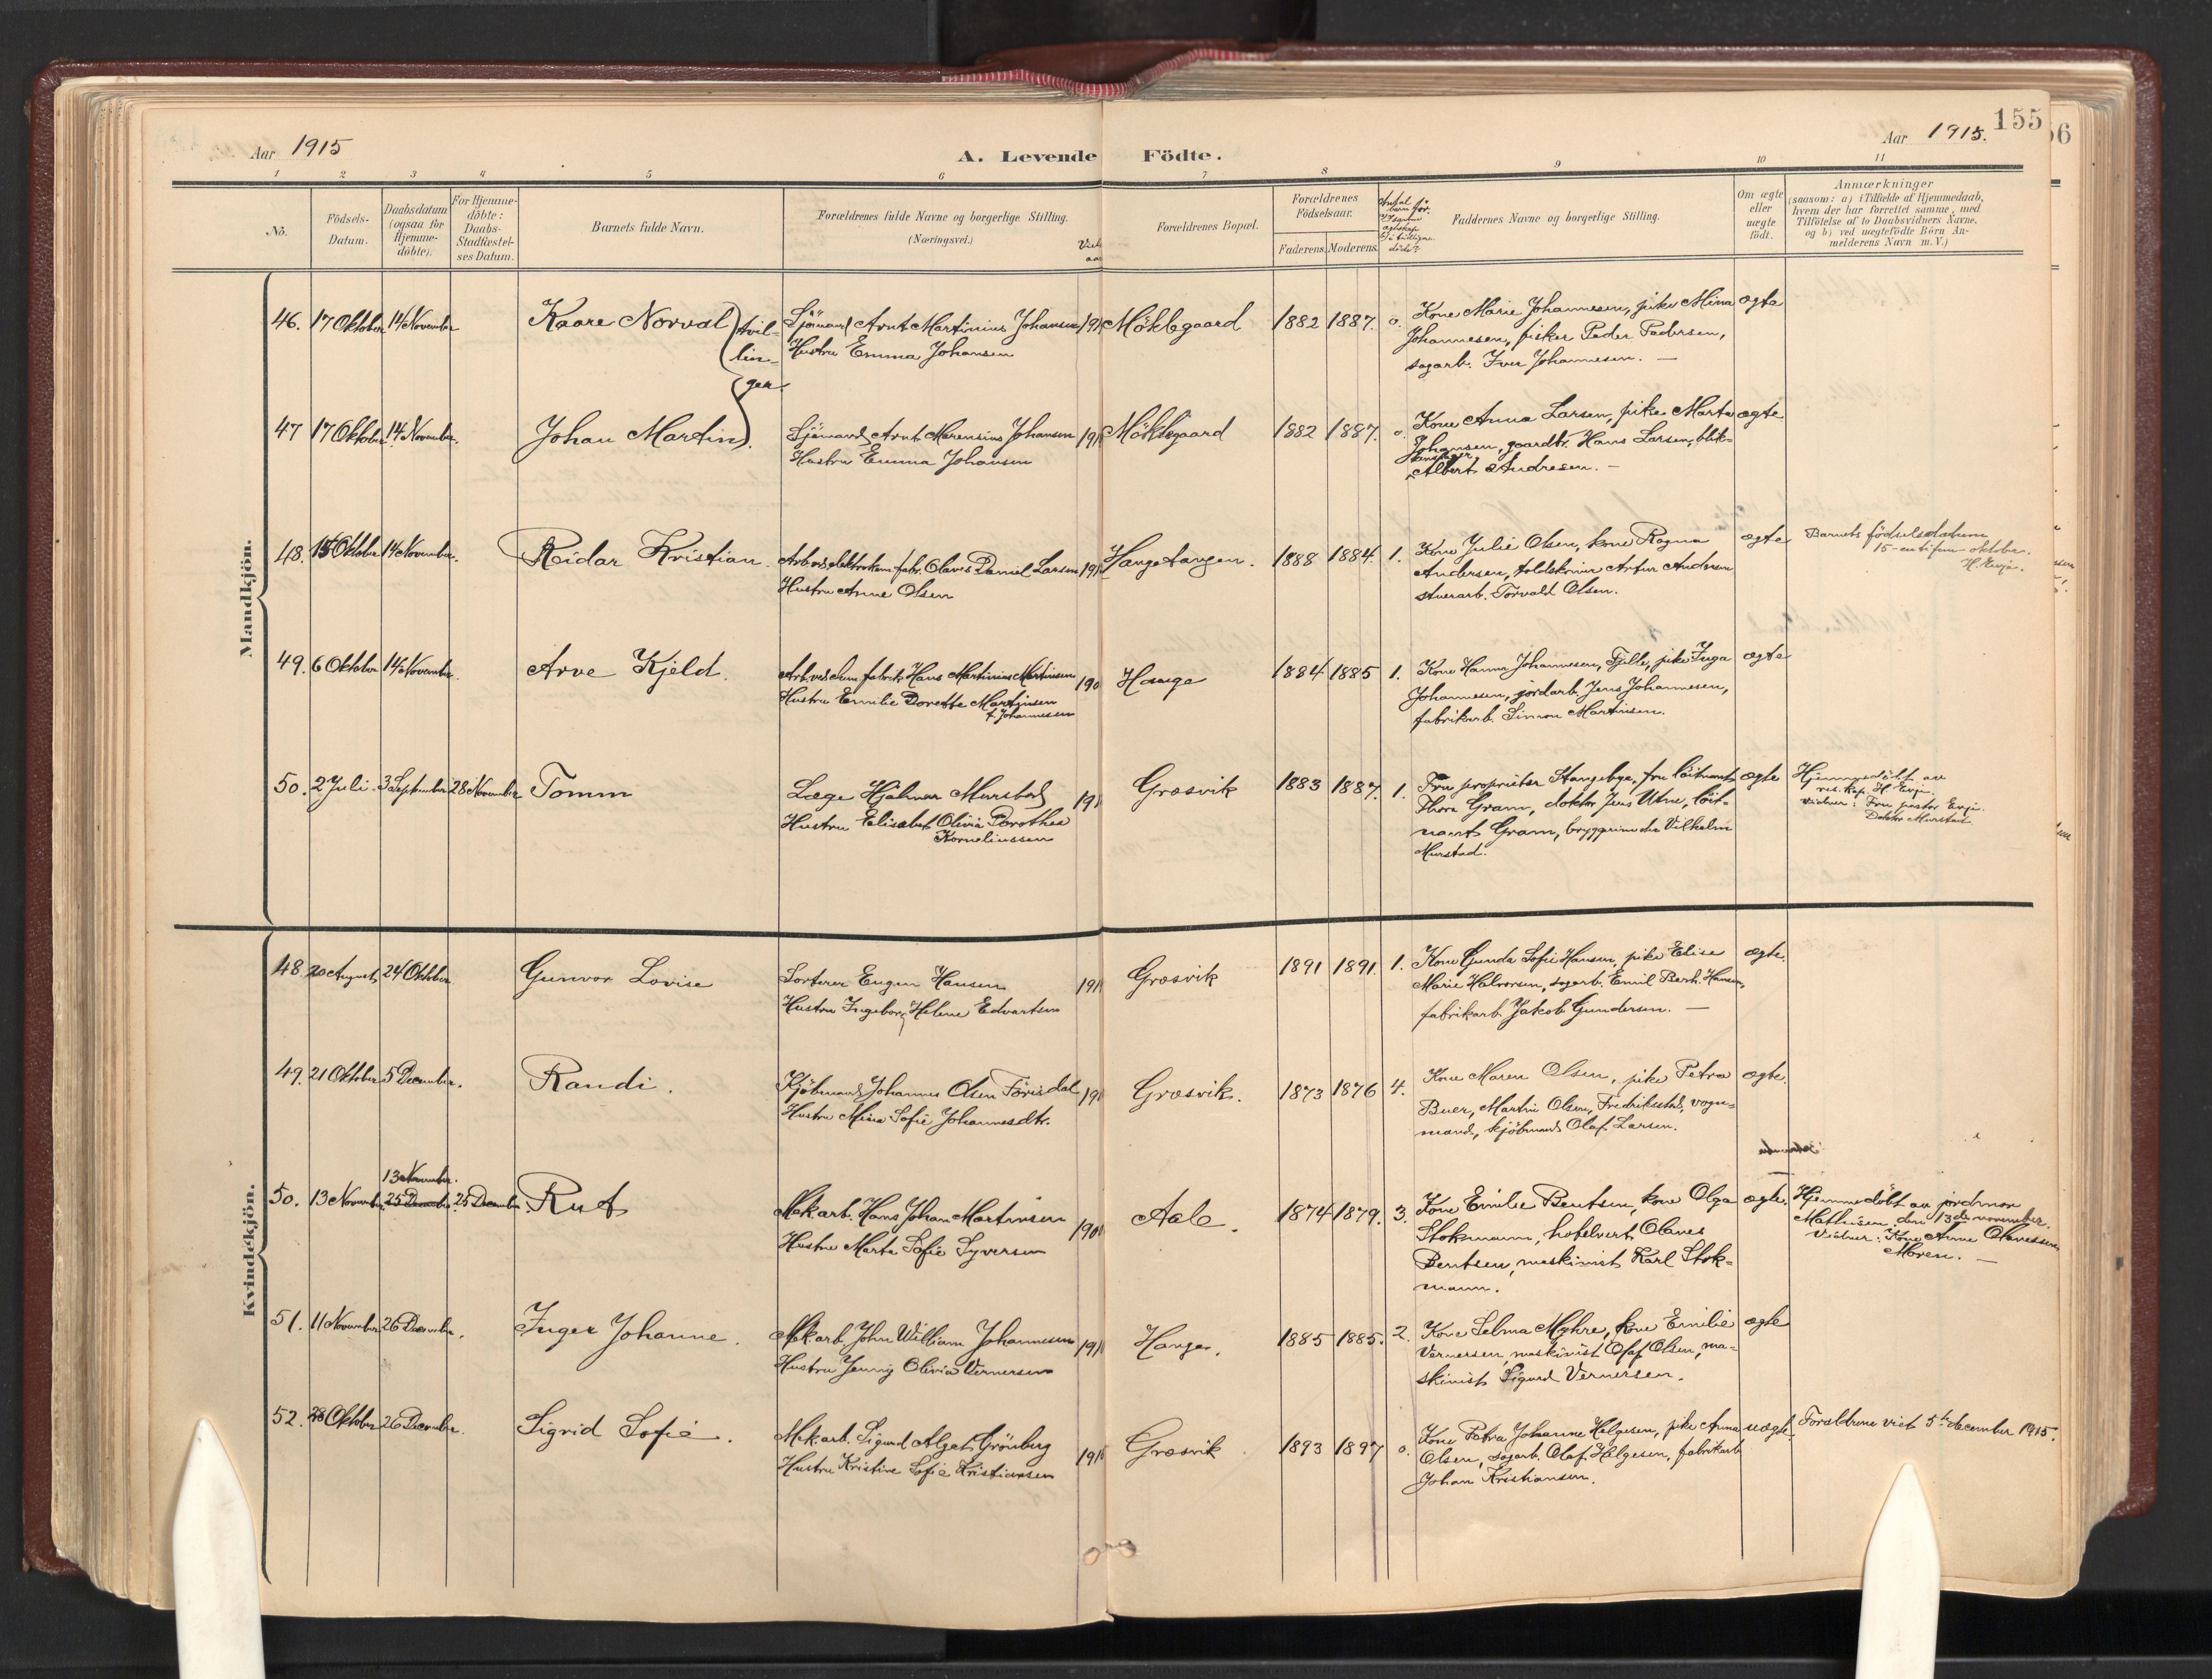 Aar 1915
A. Levende Födte.
Aar 1915.
155
56
1 2 3 4 5 6 7 8 9 10 11
Nò.
Födsels-
Datum.
Daabsdatum
(ogsaa for
Hjemme-
döbte).
For Hjemme-
döbte:
Daabs-
Stadfæstel-
ses Datum.
Barnets fulde Navn.
Forældrenes fulde Navne og borgerlige Stilling.
(Næringsvei.)
Forældrenes Bopæl.
Forældrenes
Födselsaar.
Faderens. Moderens.
Faddernes Navne og borgerlige Stilling.
Om ægte
eller
uægte
födt.
Anmærkninger
(saasom: a) i Tilfælde af Hjemmedaab,
hvem der har forrettet samme, med
Tilföielse af to Daabsvidners Navne,
og b) ved uægtefödte Börn An-
melderens Navn m. V.)
Mandkjön.
46. 17 Oktober 14 November Kaare Norval
tvil-
lin-
ger
Sjömand Arnt Martinius Johansen 191
Hustru Emma Johansen
Möklegaard 1882 1887. 0.
Kone Marie Johannesen, pike Mina
Johannesen, fisker Peder Pedersen,
sagarb. Iver Johannesen. —
ægte
47 17 Oktober 14 November. Johan Martin.
Sjömand Arnt Marensius Johansen 191
Hustru Emma Johansen
Möklegaard 1882 1887. 0.
Kone Anna Larsen, pike Marta
Johansen, gaardbr. Hans Larsen, blik-
Albert Andresen. —
ægte
48. 15 Oktober 14 November. Reidar Kristian.
Arb. ved elektrokem. fabr. Olaves Daniel Larsen 191
Hustru Anne Olsen
Haugetangen. 1888 1884. 1.
Kone Julie Olsen, kone Ragna
Andersen, toldskriver Artur Andersen
stuerarb. Torvald Olsen.
ægte
Barnets födselsdatum
15-en ti fem oktober.
H. Evje.
49. 6 Oktober 14 November. Arve Kjeld.
Arb. ved chem. fabrik Hans Martinius Martinsen 190
Hustru Emilie Dorette Martinsen
f. Johannessen
Hauge 1884 1885 1.
Kone Hanna Johannesen, Fjelle, pike Inga
Johannesen, jordarb. Jens Johannesen,
fabrikarb. Simon Martinsen.
ægte
50. 2 Juli. 3 September 28 November Tomm
Læge Hjalmar Murstad 191
Hustru Elisabet Olivia Dorothea
Korneliussen
Græsvik 1883 1887. 1.
Fru proprietær Stangebye, fru löitnant
Thora Gram, doktor Jens Utne, löit-
nant Gram, bryggerieier Vilhelm
Murstad.
ægte
Hjemmedöbt av
res. kap. H. Evje.
Vidner: Fru pastor Evje.
Doktor Murstad
Kvindekjön.
48. 20 August 24 Oktober Gunvor Lovise
Sorterer Eugen Hansen 191
Hustru Ingeborg Helene Edvartsen
Græsvik 1891 1891. 1.
Kone Gunda Sofie Hansen, pike Elise
Marie Halvorsen, sagarb. Emil Berh. Hansen,
fabrikarb. Jakob Gundersen. —
ægte.
49. 21 Oktober 5 December. Randi.
Kjöbmand Johannes OlsenFörisdal 191
Hustru Mina Sofie Johannesdtr.
Græsvik. 1873 1876 4.
Kone Maren Olsen, pike Petra
Buer, Martin Olsen, Fredrikstad, vogn-
mand, kjöbmand Olaf Larsen.
ægte.
50. 13 November 13 November. 25 December. 25 December. Rut
Mek. arb. Hans Johan Martinsen 190
Hustru Marta Sofie Syversen
Aale. 1874 1879. 3.
Kone Emilie Bentsen, kone Olga
Stokmann, hotelvert Olaves
Bentsen, maskinist Karl Stok-
mann.
ægte.
Hjemmedöbt av jordmor
Mathisen den 13de november.
Vidner: Kone Anne Olavessen
Moren. —
51. 11 November 26 December. Inger Johanne.
Mek. arb. John William Johannessen 191
Hustru Jenny Olivia Vernersen
Hauge. 1885 1885. 2.
Kone Selma Myhre, kone Emilie
Vernersen, maskinist Olaf Olsen, ma-
skinist Sigurd Vernersen.
ægte
52. 28 Oktober 26 December. Sigrid Sofie.
Mek. arb. Sigurd Alget Grönberg 191
Hustru Kristine Sofie Kristiansen
Græsvik 1893 1897 0.
Kone Petra Johanne Helgesen, pike Anna
Olsen, sagarb. Olaf Helgesen, fabrikarb
Johan Kristiansen.
uægte.
Forældrene viet 5te december 1915.